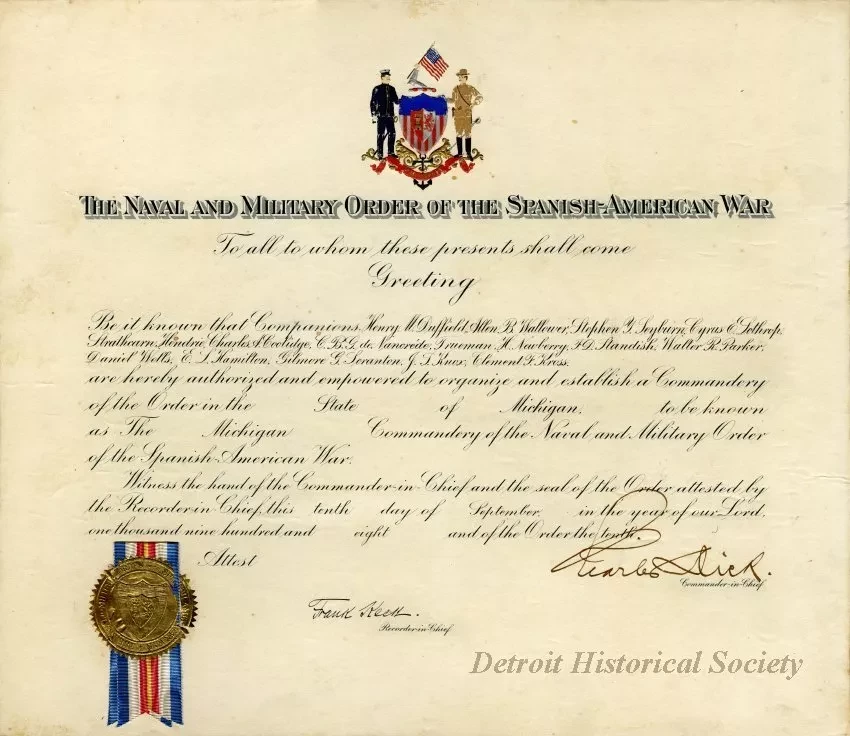 THE NAVAL AND MILITARY ORDER OF THE SPANISH-AMERICAN WAR
To all to whom these presents shall come
Greeting
Be it known that Companions, Henry M. Duffield, Allen B. Wallower, Stephen Y. Seyburn, Cyrus E. Lothrop,
Strathearn Hendrie, Charles A. Coolidge, C. B. G. de Nancrède, Trueman H. Newberry, F. D. Standish, Walter R. Parker,
Daniel Wells, E. L. Hamilton, Gilmore G. Scranton, J. T. Knox, Clement F. Kross,
are hereby authorized and empowered to organize and establish a Commandery
of the Order in the State of Michigan, to be known
as The Michigan Commandery of the Naval and Military Order
of the Spanish-American War.
Witness the hand of the Commander-in-Chief and the seal of the Order attested by
the Recorder-in-Chief, this tenth day of September, in the year of our Lord,
one thousand nine hundred and eight and of the Order the tenth.
Attest
Charles Dick.
Commander-in-Chief
Frank Keck.
Recorder-in-Chief
Detroit Historical Society